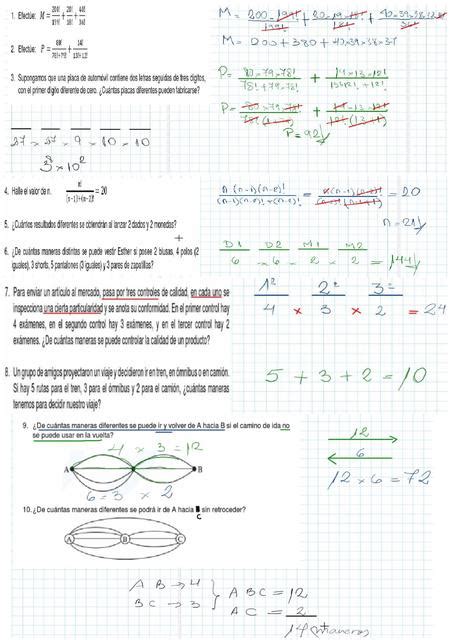 1. Efectúe: M = 200!/199! + 20!/18! + 40!/36!
M = 200·199!/199! + 20·19·18!/18! + 40·39·38·37·36!
M = 200 + 380 + 40×39×38×37
2. Efectúe: P = 80!/(78!+79!) + 14!/(13!+12!)
P = 80×79×78!/(78!+79×78!) + 14×13×12!/(13×12!+12!)
P = 80×79×78!/78!(1+79) + 14×13×12!/12!(13+1)
P = 92
3. Supongamos que una placa de automóvil contiene dos letras seguidas de tres dígitos,
con el primer dígito diferente de cero. ¿Cuántas placas diferentes pueden fabricarse?
27 × 27 × 9 × 10 × 10
3⁸ × 10²
4. Halle el valor de n. n!/((n-1)!+(n-2)!) = 20
n(n-1)(n-2)!/((n-1)(n-2)!+(n-2)!) = n(n-1)(n-2)! = 20
n = 21
5. ¿Cuántos resultados diferentes se obtendrán al lanzar 2 dados y 2 monedas?
D1 D2 M1 M2
6 × 6 × 2 × 2 = 144
6. ¿De cuántas maneras distintas se puede vestir Esther si posee 2 blusas, 4 polos (2
iguales), 3 shorts, 5 pantalones (3 iguales) y 3 pares de zapatillas?
7. Para enviar un artículo al mercado, pasa por tres controles de calidad, en cada uno se
inspecciona una cierta particularidad y se anota su conformidad. En el primer control hay
4 exámenes, en el segundo control hay 3 exámenes, y en el tercer control hay 2
exámenes. ¿De cuántas maneras se puede controlar la calidad de un producto?
1º 2º 3º
4 × 3 × 2 = 24
8. Un grupo de amigos proyectaron un viaje y decidieron ir en tren, en ómnibus o en camión.
Si hay 5 rutas para el tren, 3 para el ómnibus y 2 para el camión, ¿cuántas maneras
tenemos para decidir nuestro viaje?
5 + 3 + 2 = 10
9. ¿De cuántas maneras diferentes se puede ir y volver de A hacia B si el camino de ida no
se puede usar en la vuelta?
4 × 3 = 12
A B
6 = 3 × 2
12
6
12 × 6 = 72
10. ¿De cuántas maneras diferentes se podrá ir de A hacia C sin retroceder?
A B C
A B → 4
B C → 3
A B C = 12
A C = 2
14 maneras